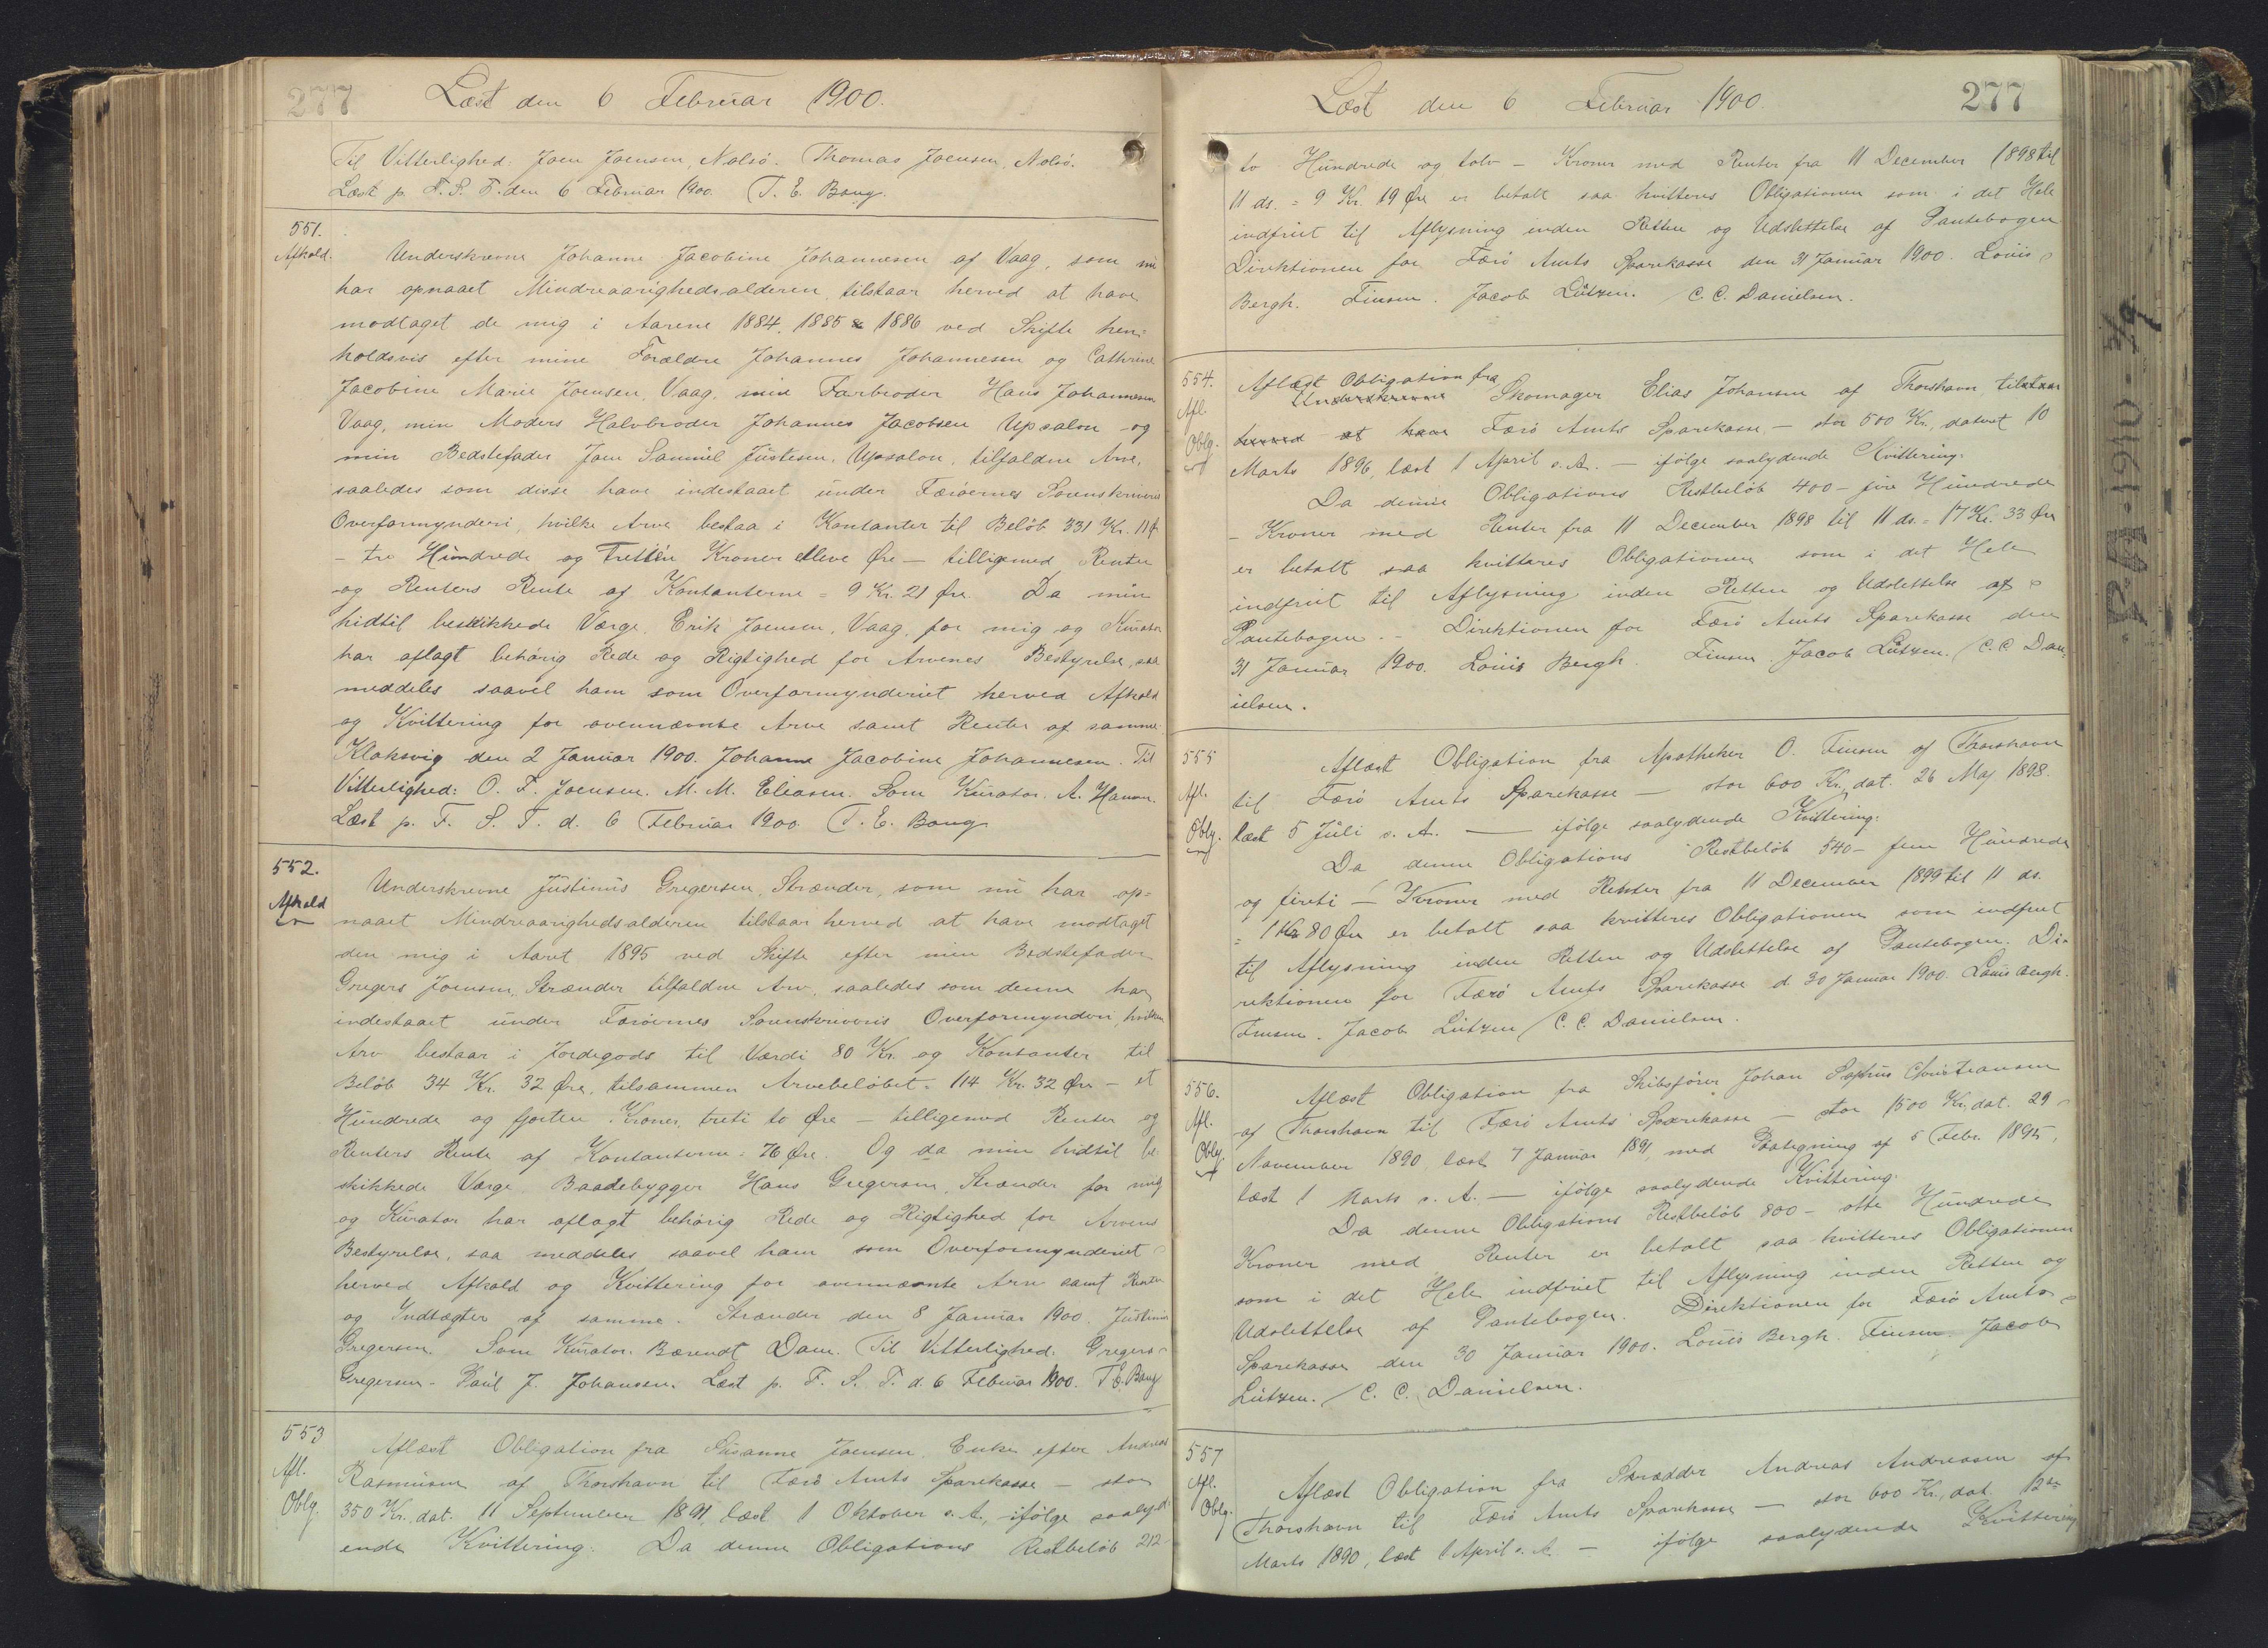 277
Læst den 6 Februar 1900.
Til Vitterlighed: Joen Joensen, Nolsö. Thomas Joensen, Nolsö.
Læst p. F. S. T. den 6 Februar 1900. T. E. Bang.
551.
Afkald.
Underskrevne Johanne Jacobine Johannesen af Vaag, som nu
har opnaaet Mindreaarighedsalderen, tilstaar herved at have
modtaget de mig i Aarene 1884, 1885 & 1886 ved Skifte hen=
holdsvis efter mine Forældre Johannes Johannesen og Cathrine
Jacobine Marie Joensen, Vaag, min Farbroder Hans Johannesen
Vaag, min Moders Halvbroder Johannes Jacobsen Upsalon og
min Bedstefader Joen Samuel Justesen, Upsalon, tilfaldne Arve,
saaledes som disse have indestaaet under Færöernes Sorenskriveres
Overformynderi, hvilke Arve bestaa i Kontanter til Beløb 331 Kr. 11 Ø
- tre Hundrede og Tretten Kroner elleve Øre - tilligemed Renter
og Renters Rente af Kontanterne = 9 Kr. 21 Øre. Da min
hidtil beskikkede Værge, Erik Joensen, Vaag, for mig og Kurator
har aflagt behørig Rede og Rigtighed for Arvenes Bestyrelse, saa
meddeles saavel ham som Overformynderiet herved Afkald
og Kvittering for ovennævnte Arve samt Renter af samme.
Klaksvig den 2 Januar 1900. Johanne Jacobine Johannesen. Til
Vitterlighed: O. F. Joensen. M. M. Eliasen. Som Kurator. A. Hansen.
Læst p. F. S. T. d. 6 Februar 1900. T. E. Bang
552.
Afkald
Underskrevne Justinus Gregersen, Strænder, som nu har op=
naaet Mindreaarighedsalderen tilstaar herved at have modtaget
den mig i Aaret 1895 ved Skifte efter min Bedstefader
Gregers Joensen, Strænder tilfaldne Arv, saaledes som denne har
indestaaet under Færöernes Sorenskriveris Overformynderi, hvilken
Arv bestaar i Jordegods til Værdi 80 Kr. og Kontanter til
Beløb 34 Kr. 32 Øre, tilsammen Arvebeløbet = 114 Kr. 32 Øre - et
Hundrede og fjorten Kroner, treti to Øre - tilligemed Renter og
Renters Rente af Kontanterne = 76 Øre. Og da min hidtil be-
skikkede Værge Baadebygger Hans Gregersen, Strænder for mig
og Kurator har aflagt behørig Rede og Rigtighed for Arvens
Bestyrelse, saa meddeles saavel ham som Overformynderiet
herved Afkald og Kvittering for ovennævnte Arv samt Renter
og Indtægter af samme. Strænder den 8 Januar 1900. Justinus
Gregersen. Som Kurator. Bærendt Dam. Til Vitterlighed. Gregers
Gregersen. Paul J. Johansen. Læst p. F. S. T. d. 6 Februar 1900. T. E. Bang
553
Afl.
Oblg.
Aflæst Obligation fra Susanne Joensen Enke efter Andreas
Rasmussen af Thorshavn til Færö Amts Sparekasse - stor
350 Kr. dat. 11 September 1891 læst 1 Oktober s. A., ifølge saalyd=
ende Kvittering. Da denne Obligations Restbeløb 212-
Læst den 6 Februar 1900.
277
to Hundrede og tolv - Kroner med Renter fra 11 December 1898 til
11 ds. = 9 Kr. 19 Øre er betalt saa kvitteres Obligationen som i det Hele
indfriet til Aflysning inden Retten og Udslettelse af Pantebogen
Direktionen for Færö Amts Sparekasse den 31 Januar 1900. Louis
Bergh. Finsen. Jacob Lützen. / C. C. Danielsen.
554.
Afl.
Oblg.
Aflæst Obligation fra
Underskrevne Skomager Elias Johansen af Thorshavn tilstaar
herved at have Færö Amts Sparekasse - stor 500 Kr., dateret 10
Marts 1896, læst 1 April s. A. - ifølge saalydende Kvittering.
Da denne Obligations Restbeløb 400 - fire Hundrede
- Kroner med Renter fra 11 December 1898 til 11 ds. = 17 Kr. 33 Øre
er betalt saa kvitteres Obligationen som i det Hele
indfriet til Aflysning inden Retten og Udslettelse af
Pantebogen. - Direktionen for Færö Amts Sparekasse den
31 Januar 1900. Louis Bergh. Finsen. Jacob Lützen. / C. C. Dan=
ielsen.
555
Afl.
Oblg.
Aflæst Obligation fra Apotheker O. Finsen af Thorshavn
til Færö Amts Sparekasse - stor 600 Kr., dat. 26 Maj 1898.
læst 5 Juli s. A. - ifølge saalydende Kvittering:
Da denne Obligations Restbeløb 540 - fem Hundrede
og fireti - Kroner med Renter fra 11 December 1899 til 11 ds.
= 1 Kr. 80 Øre er betalt saa kvitteres Obligationen som indfriet
til Aflysning inden Retten og Udslettelse af Pantebogen. Di=
rektionen for Færö Amts Sparekasse d. 30 Januar 1900. Louis Bergh.
Finsen. Jacob Lützen / C. C. Danielsen.
556.
Afl.
Oblg.
Aflæst Obligation fra Skibsfører Johan Sophus Christiansen
af Thorshavn til Færö Amts Sparekasse - stor 1500 Kr, dat. 29
November 1890, læst 7 Januar 1891, med Paategning af 5 Febr. 1895,
læst 1 Marts s. A. - ifølge saalydende Kvittering.
Da denne Obligations Restbeløb 800 - otte Hundrede
Kroner med Renter er betalt saa kvitteres Obligationen
som i det Hele indfriet til Aflysning inden Retten og
Udslettelse af Pantebogen. Direktionen for Færö Amts
Sparekasse den 30 Januar 1900. Louis Bergh. Finsen. Jacob
Lützen. / C. C. Danielsen.
557
Afl.
Oblg.
Aflæst Obligation fra Skrædder Andreas Andreasen af
Thorshavn til Færö Amts Sparekasse - stor 600 Kr., dat. 12te
Marts 1890, læst 1 April s. A. - ifølge saalydende Kvittering